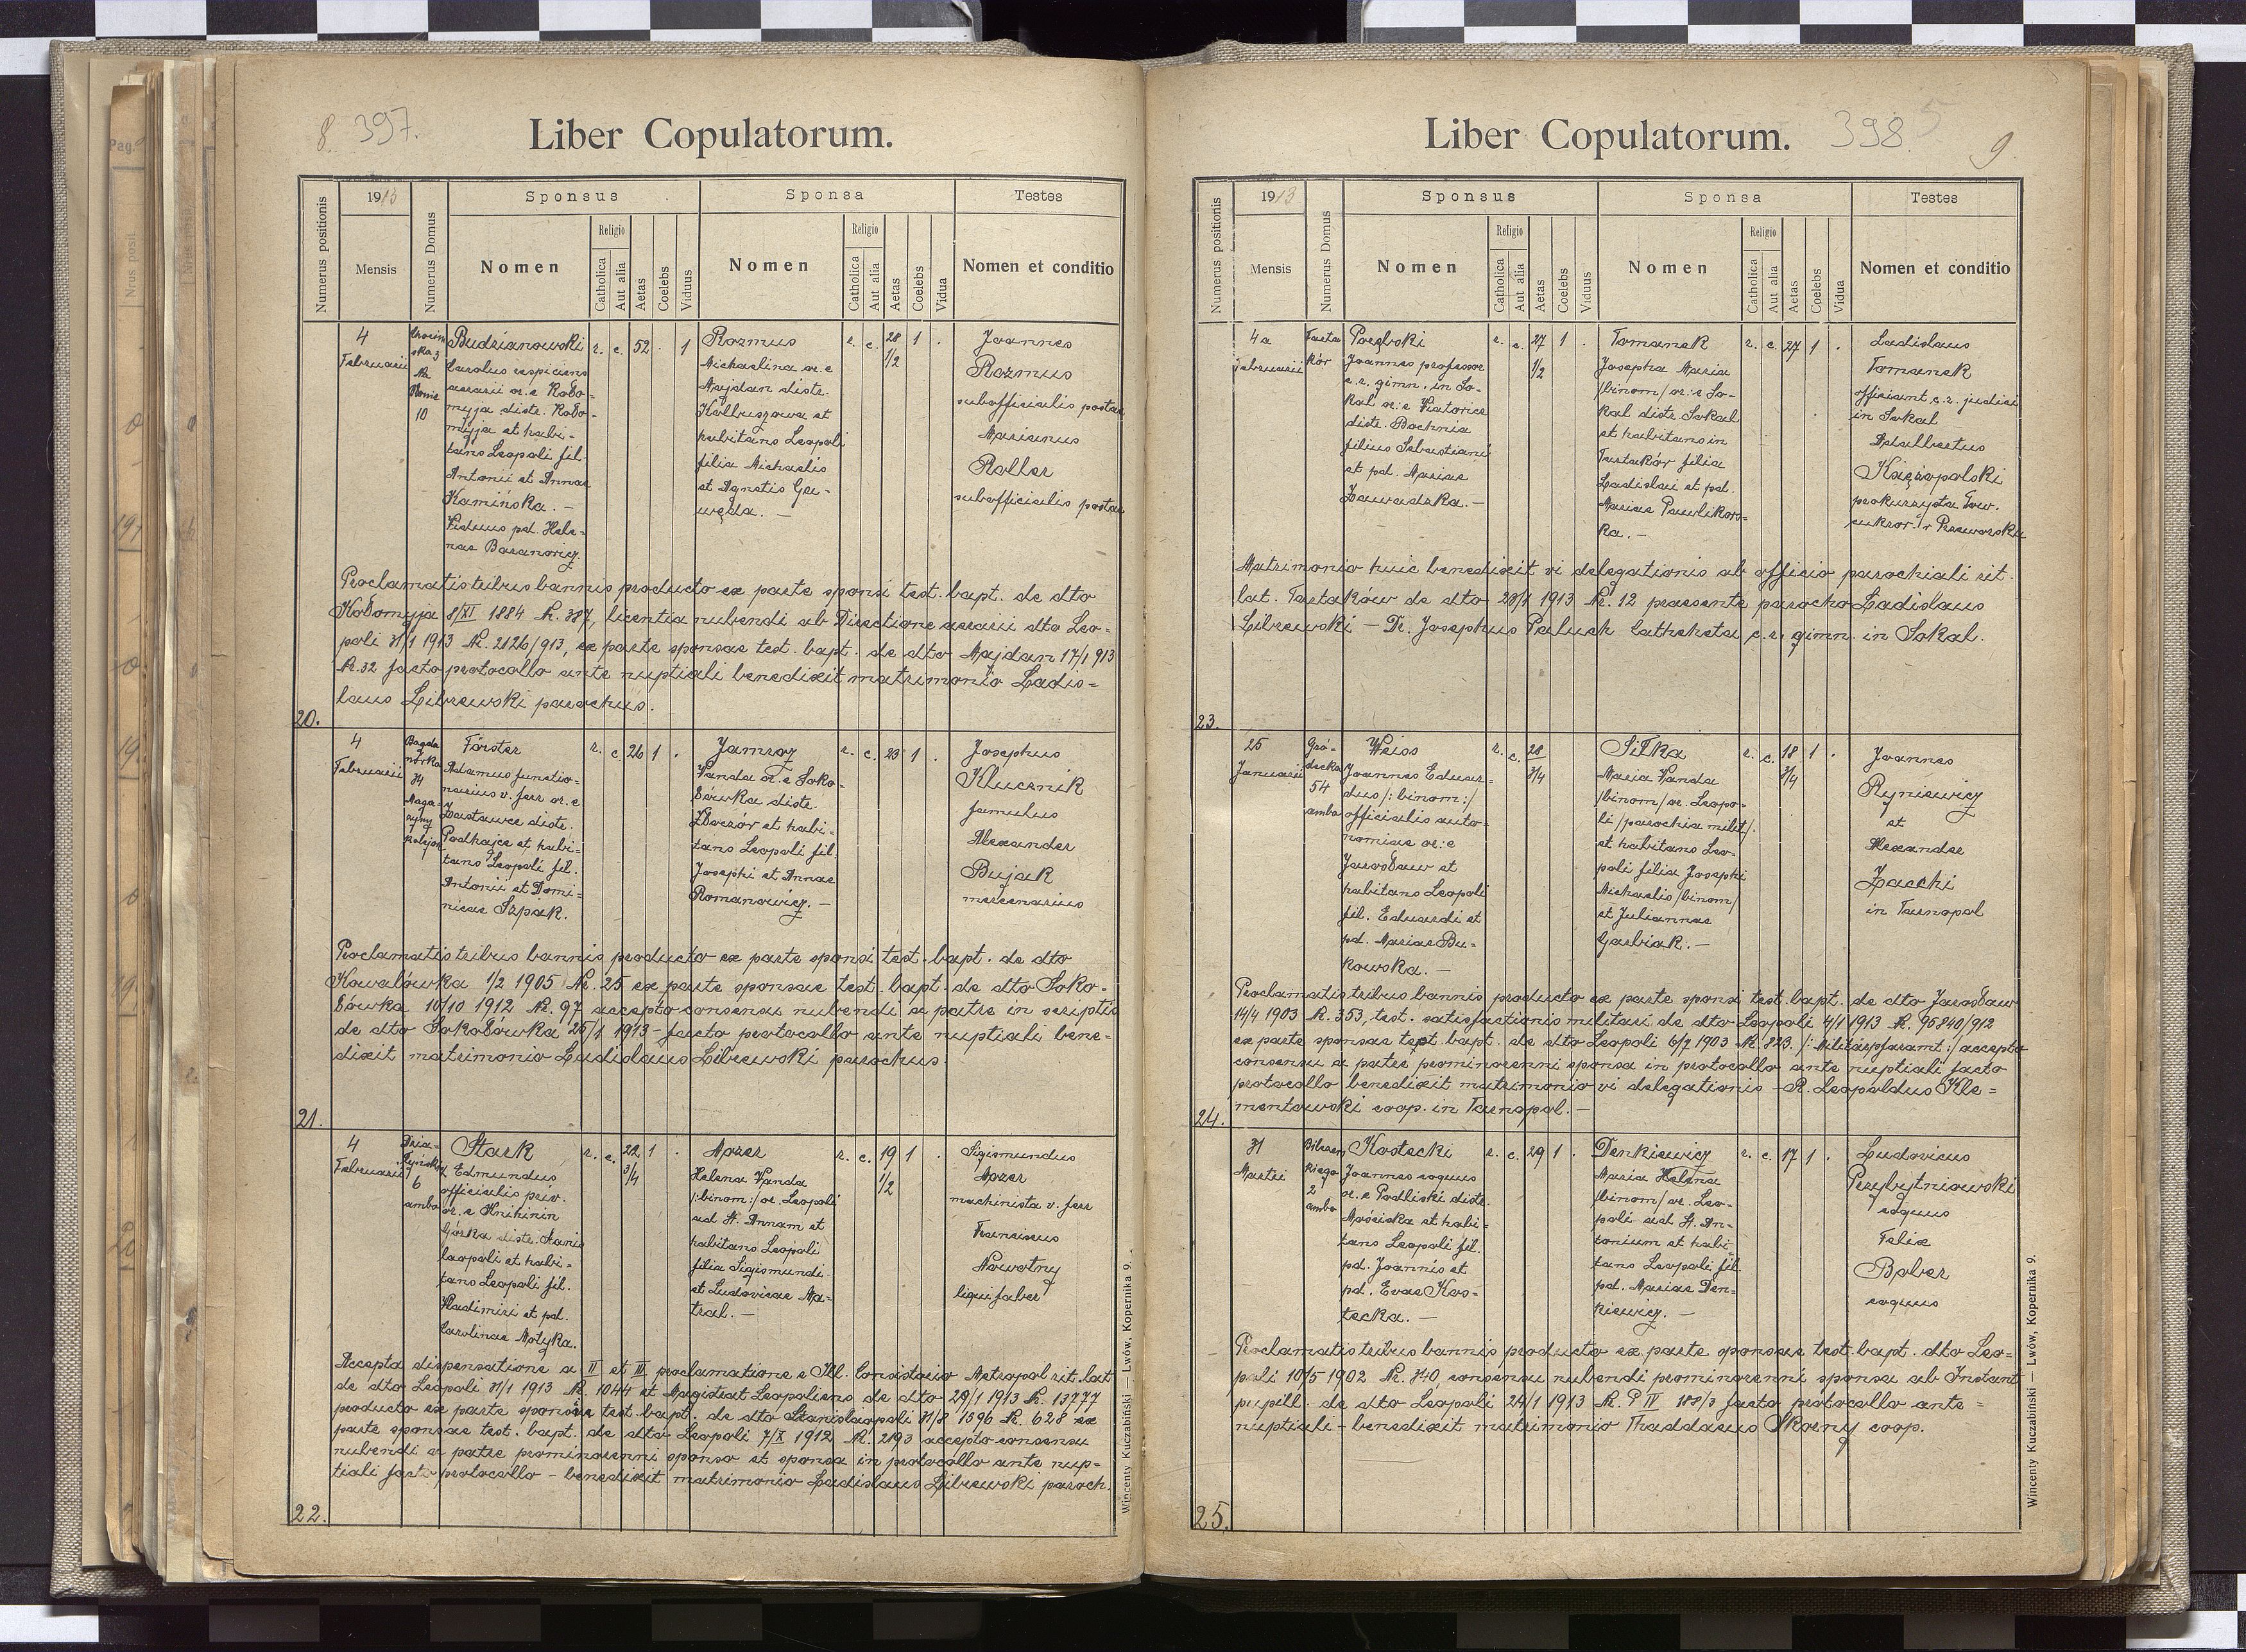 8. 397.
Liber Copulatorum.
Numerus positionis
1913
Mensis
Numerus Domus
Sponsus
Nomen
Religio
Catholica
Aut alia
Aetas
Coelebs
Viduus
Sponsa
Nomen
Religio
Catholica
Aut alia
Aetas
Coelebs
Vidua
Testes
Nomen et conditio
20.
4
Februarii
10
Budzianowski
Carolus respiciens
aerarii or. e Koło-
myja distr. Koło-
myja et habi-
tans Leopoli fil.
Antonii et Annae
Kamińska. —
Viduus pd. Hele-
nae Baranowicz.
r. c. 52 . 1
Rozmus
Michaelina or. e
Majdan distr.
Kolbuszowa et
habitans Leopoli
filia Michaelis
et Agnetis Ga-
węda. —
r. c. 28 1/2 1 .
Joannes
Rozmus
subofficialis postae
Marianus
Roller
subofficialis postae
Proclamatis tribus bannis producto ex parte sponsi test. bapt. de dto
Kołomyja 8/XI 1884 Nr. 387, licentia nubendi ab Directione aerarii dto Leo-
poli 31/1 1913 Nr. 2126/913, ex parte sponsae test. bapt. de dto Majdan 17/1 913
Nr. 32 facto protocollo ante nuptiali benedixit matrimonio Ladis-
laus Librewski parochus.
21.
4
Februarii
Bogda
nówka
34
Maga-
zyny
kolejow
Förster
Adamus functio-
narius v. ferr or. e
Zastawce distr.
Podhajce et habi-
tans Leopoli fil.
Antonii et Domi-
nicae Szpak.
r. c. 26 1 .
Jamroz
Vanda or. e Soko-
łówka distr.
Złoczów et habi-
tans Leopoli fil.
Josephi et Annae
Romanowicz. —
r. c. 23 1 .
Josephus
Klucznik
famulus
Alexander
Bujak
mercenarius
Proclamatis tribus bannis producto ex parte sponsi test. bapt. de dto
Kowalówka 1/2 1905 Nr. 25 ex parte sponsae test. bapt. de dto Soko-
łówka 10/10 1912 Nr. 97 accepto consensu nubendi a patre in scriptis
de dto Sokołówka 25/1 1913 — facto protocollo ante nuptiali bene-
dixit matrimonio Ladislaus Librewski parochus.
22.
4
Februarii
6
ambo
Stark
Edmundus
officialis priv.
or. e Knihinin
Górka distr. Stanis
laopoli et habi-
tans Leopoli fil.
Wladimiri et pd.
Carolinae Motyka.
r. c. 22 3/4 1 .
Mozer
Helena Vanda
/:binom:/ or. Leopoli
ad St. Annam et
habitans Leopoli
filia Sigismundi
et Ludovicae Ma-
tral. —
r. c. 19 1/2 1 .
Sigismundus
Mozer
machinista v. ferr
Franciscus
Nowotny
ligni faber
Accepta dispensatione a II et III proclamatione e Ill. Consistorio Metropol rit. lat
de dto Leopoli 31/1 1913 Nr. 1044 et Magistrat Leopoliens de dto 29/1 1913 Nr. 13777
producto ex parte sponsi test. bapt. de dto Stanislaopoli 31/8 1896 Nr. 628 ex
parte sponsae test. bapt. de dto Leopoli 7/X 1912 Nr. 2193 accepto consensu
nubendi a patre prominorenni sponso et sponsa in protocollo ante nup-
tiali facto protocollo — benedixit matrimonio Ladislaus Librewski paroch.
Wincenty Kuczabiński — Lwów, Kopernika 9.
Liber Copulatorum.
398. 5
9
Numerus positionis
1913
Mensis
Numerus Domus
Sponsus
Nomen
Religio
Catholica
Aut alia
Aetas
Coelebs
Viduus
Sponsa
Nomen
Religio
Catholica
Aut alia
Aetas
Coelebs
Vidua
Testes
Nomen et conditio
23.
4a
Februarii
Tarta
ków
Porębski
Joannes professor
c. r. gimn. in So-
kal or: e Wiatowice
distr. Bochnia
filius Sebastiani
et pd. Mariae
Zawadzka. —
r. c. 27 1/2 1 .
Tomanek
Josepha Maria
/binom/ or: e So-
kal distr. Sokal
et habitans in
Tartaków filia
Ladislai et pd.
Mariae Pawlikows-
ka. —
r. c. 27 1 .
Ladislaus
Tomanek
officiant c. r. judicii
in Sokal
Adalbertus
Księżopolski
prokurzysta Tow.
cukrow. w Przeworsku
Matrimonio huic benedixit vi delegationis ab officio parochiali rit.
lat. Tartaków de dto 28/1 1913 Nr. 12 praesente parocho Ladislaus
Librewski — Dr. Josephus Paluch Catecheta c. r. gimn. in Sokal.
24.
25
Januarii
Gró-
decka
54
ambo
Weiss
Joannes Eduar-
dus /:binom:/
officialis auto-
nomiae or: e
Jarosław et
habitans Leopoli
fil. Eduardi et
pd. Mariae Bu-
kowska. —
r. c. 28 3/4
Sitka
Maria Vanda
/binom/ or. Leopo-
li /parochia milit/.
et habitans Leo-
poli filia Josephi
Michaelis /binom/
et Juliannae
Garbiak. —
r. c. 18 3/4 1 .
Joannes
Ryniewicz
et
Alexander
Zacchi
in Tarnopol
Proclamatis tribus bannis producto ex parte sponsi test. bapt. de dto Jarosław
14/4 1903 Nr. 353, test. satisfactionis militari de dto Leopoli 4/1 1913 Nr. 95840/912
ex parte sponsae test bapt. de dto Leopoli 6/7 1903 Nr. 823. /:Militärpfaramt:/ accepto
consensu a patre prominorenni sponsa in protocollo ante nuptiali facto
protocollo benedixit matrimonio vi delegationis — R. Leopoldus Kle-
mentowski coop. in Tarnopol. —
25.
31
Martii
2
ambo
Kostecki
Joannes coquus
or. e Podliski distr.
Mościska et habi-
tans Leopoli fil.
pd. Joannis et
pd. Evae Kos-
tecka. —
r. c. 29 1 .
Denkiewicz
Maria Helena
/binom/ or. Leo-
poli ad St. An-
tonium et habi-
tans Leopoli fil.
pd. Mariae Den-
kiewicz. —
r. c. 17 1 .
Ludovicus
Przybytniowski
coquus
Felix
Bober
coquus
Proclamatis tribus bannis producto ex parte sponsae test. bapt. dto Leo-
poli 10/5 1902 Nr. 340, consensu nubendi prominorenni sponsa ab Instant
pupill. de dto Leopoli 24/1 1913 Nr. P IV facto protocollo ante-
nuptiali — benedixit matrimonio Thaddaeus Skorny coop.
Wincenty Kuczabiński — Lwów, Kopernika 9.